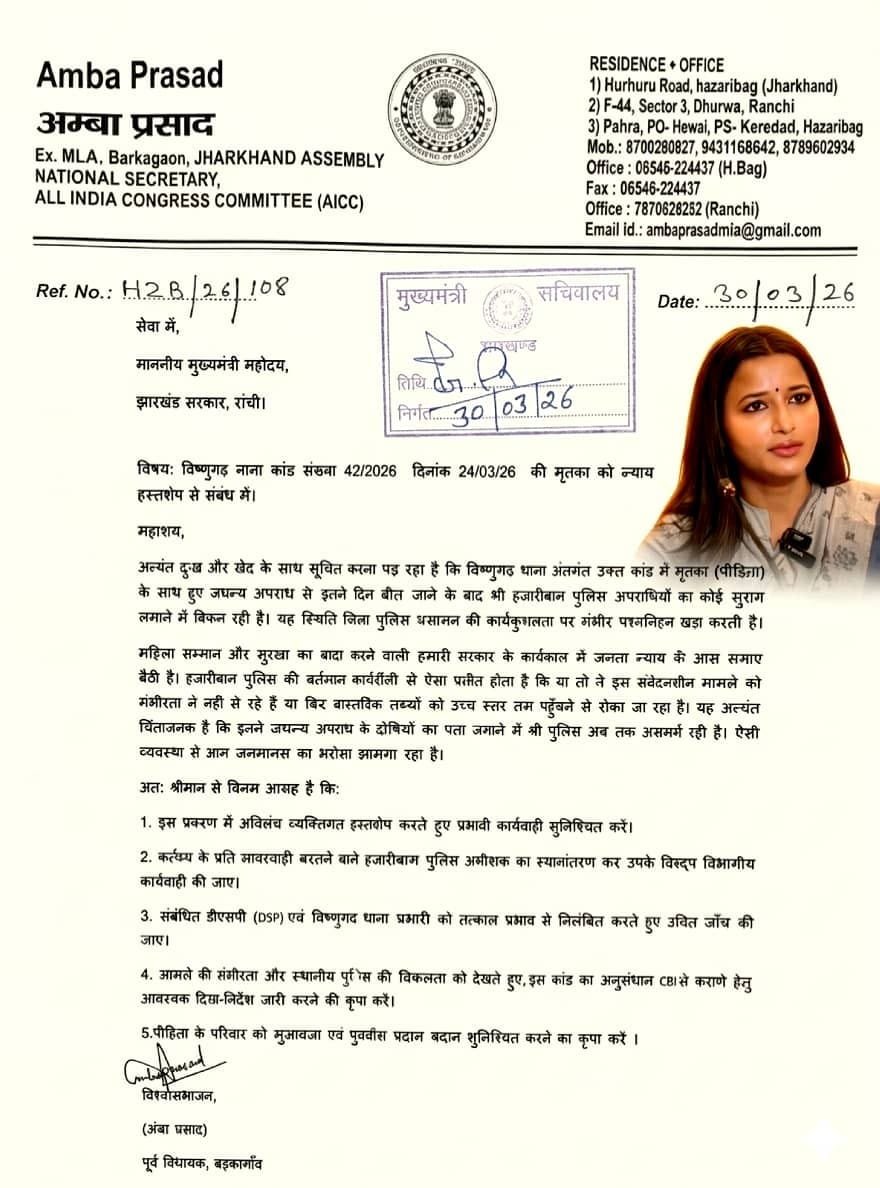 Amba Prasad
अम्बा प्रसाद
Ex. MLA, Barkagaon, JHARKHAND ASSEMBLY
NATIONAL SECRETARY,
ALL INDIA CONGRESS COMMITTEE (AICC)
RESIDENCE + OFFICE
1) Hurhuru Road, hazaribag (Jharkhand)
2) F-44, Sector 3, Dhurwa, Ranchi
3) Pahra, PO- Hewai, PS- Keredad, Hazaribag
Mob.: 8700280827, 9431168642, 8789602934
Office : 06546-224437 (H.Bag)
Fax : 06546-224437
Office : 7870628252 (Ranchi)
Email id.: ambaprasadmia@gmail.com
Ref. No.: HZB/26/108
मुख्यमंत्री सचिवालय
झारखण्ड
तिथि
निर्गत 30/03/26
Date: 30/03/26
सेवा में,
माननीय मुख्यमंत्री महोदय,
झारखंड सरकार, रांची।
विषय: विष्णुगढ़ नाना कांड संख्वा 42/2026 दिनांक 24/03/26 की मृतका को न्याय
हस्तशेप से संबंध में।
महाशय,
अत्यंत दुःख और खेद के साथ सूचित करना पड़ रहा है कि विष्णुगढ़ थाना अंतगंत उक्त कांड में मृतका (पीडिता)
के साथ हुए जघन्य अपराध से इतने दिन बीत जाने के बाद श्री हजारीबान पुलिस अपराधियों का कोई सुराग
लमाने में बिकन रही है। यह स्थिति जिला पुलिस धसामन की कार्यकुशलता पर गंभीर पश्ननिहन खड़ा करती है।
महिला सम्मान और सुरखा का बादा करने वाली हमारी सरकार के कार्यकाल में जनता न्याय के आस समाए
बैठी है। हजारीबान पुलिस की बर्तमान कार्यर्रीली से ऐसा प्रतीत होता है कि या तो ने इस संवेदनशीन मामले को
गंभीरता ने नहीं से रहे हैं या बिर वास्तविक तब्यों को उच्च स्तर तम पहुँचने से रोका जा रहा है। यह अत्यंत
चिंताजनक है कि इनने जघन्य अपराध के दोषियों का पता जगाने में श्री पुलिस अब तक असमर्ग रही है। ऐसी
व्यवस्था से आम जनमानस का भरोसा झामगा रहा है।
अत: श्रीमान से विनम आसह है कि:
1. इस प्रकरण में अविलंच व्यक्तिगत हस्तशेप करते हुए प्रभावी कार्यवाही सुनिश्चित करें।
2. कर्त्तव्य के प्रति मावरवाही बरतने बाने हजारीबाम पुलिस अमीशक का स्यानांतरण कर उपके विरूद्प विभागीय
कार्यवाही की जाए।
3. संबंधित डीएसपी (DSP) एवं विष्णुगद थाना प्रभारी को तत्काल प्रभाव से निलंबित करते हुए उवित जाँच की
जाए।
4. आमले की संभीरता और स्थानीय की विकलता को देखते हुए, इस कांड का अनुसंधान CBI से कराणे हेतु
आवस्वक दिशा-निर्देश जारी करने की कृपा करें।
5.पीहिता के परिवार को मुआवजा एवं पुववीस प्रदान बदान शुनिश्यित करने का कृपा करें ।
Amba Prasad
विश्वासभाजन,
(अंबा प्रसाद)
पूर्व विधायक, बड़कागाँव